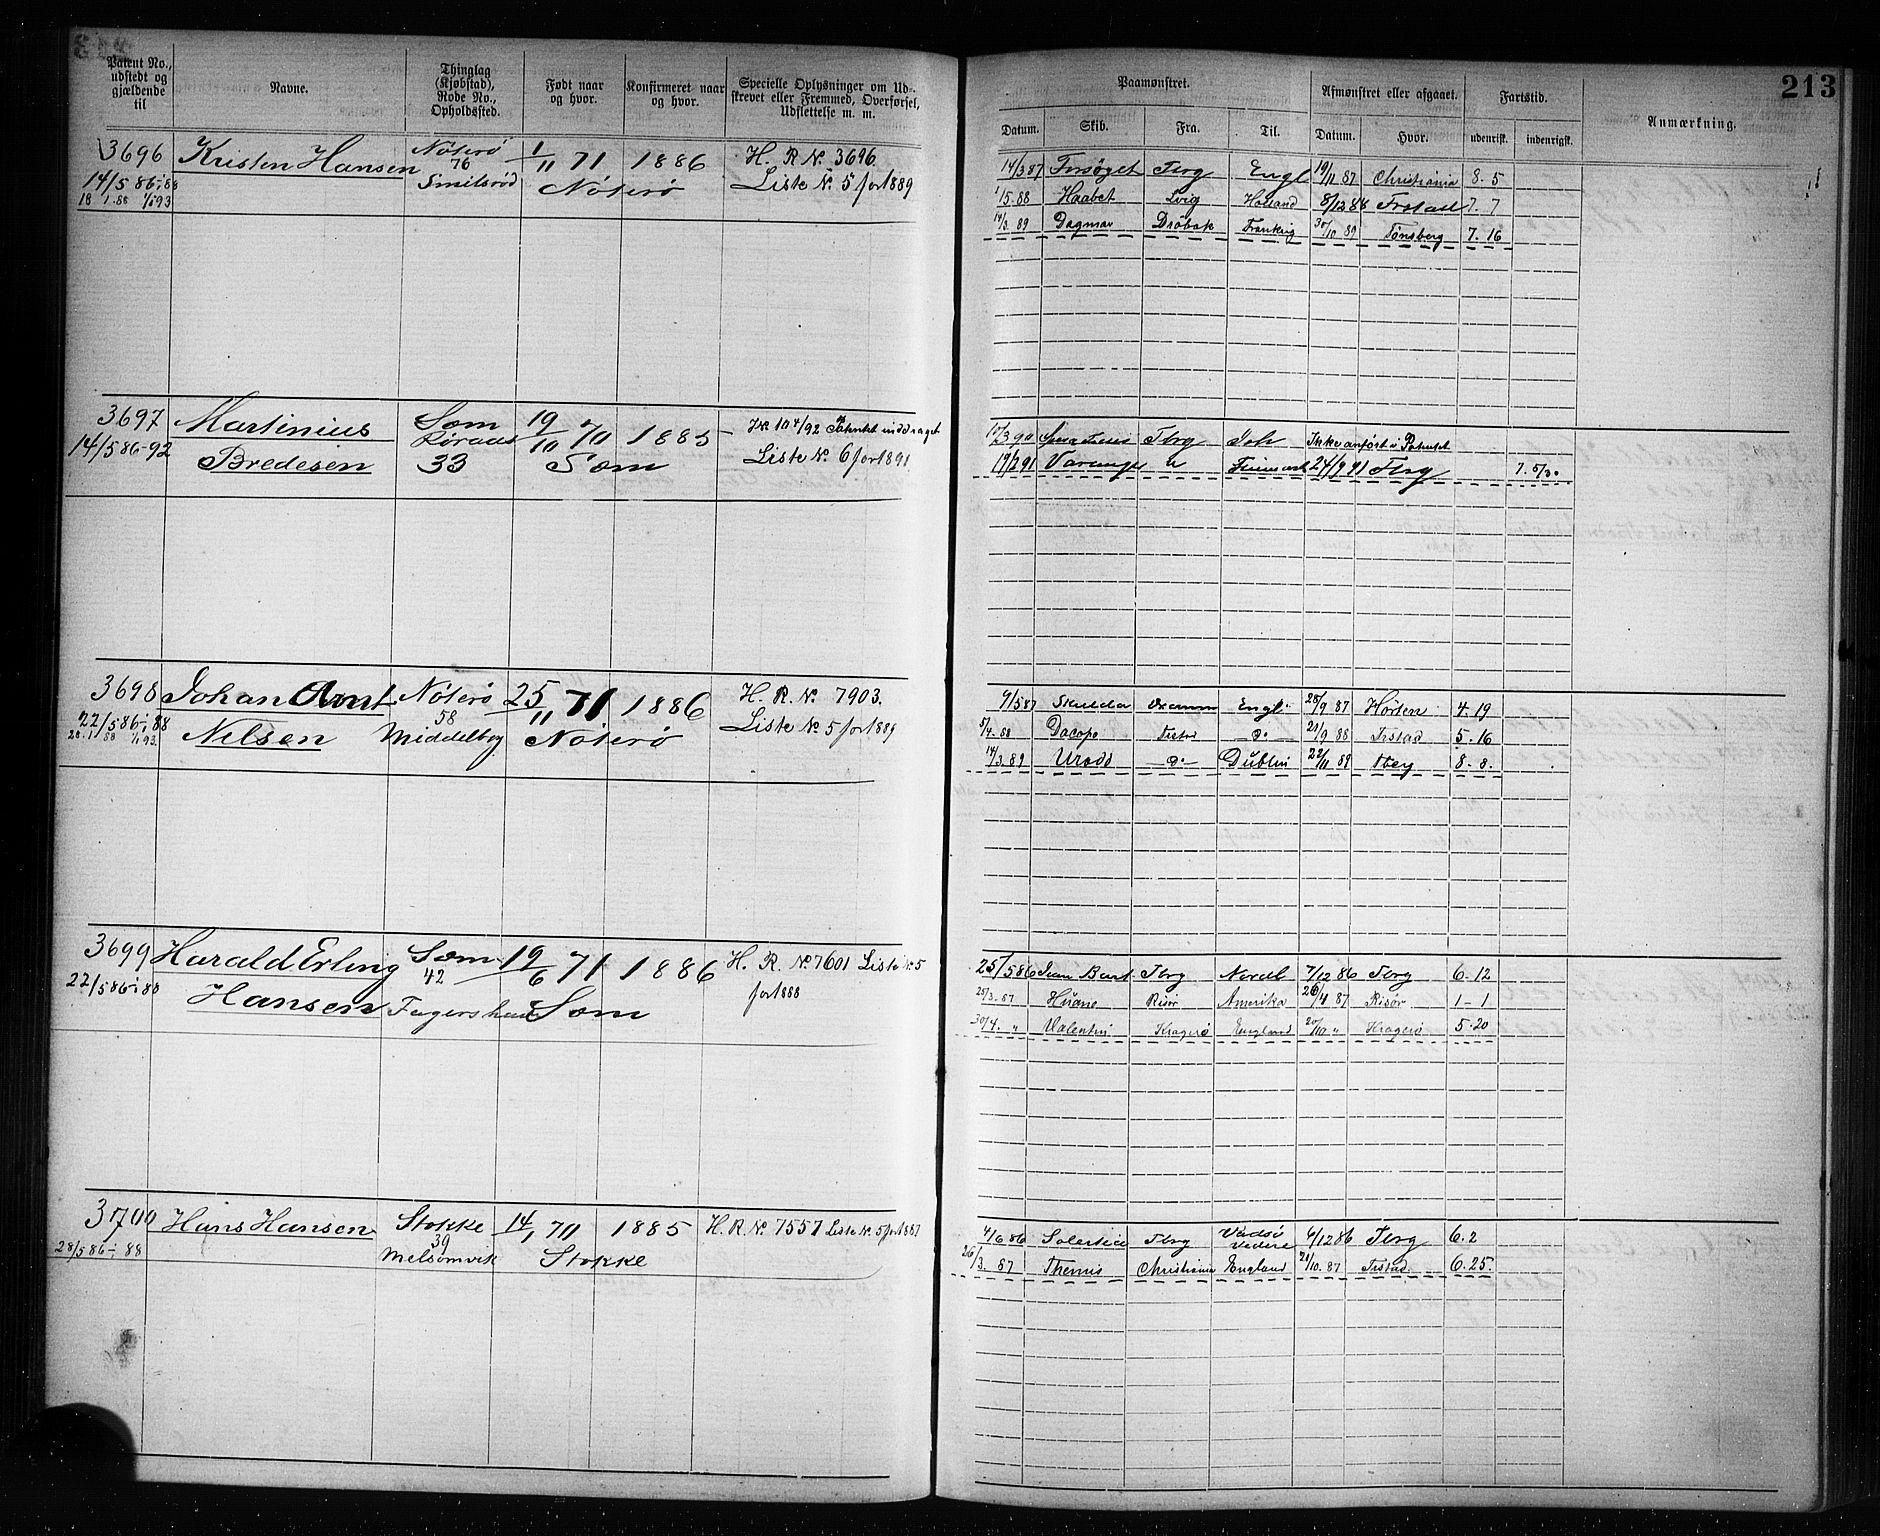 213
Patent No., udstedt og gjældende til
Navne.
Thinglag (Kjøbstad), Rode No., Opholdssted.
Født naar og hvor.
Konfirmeret naar og hvor.
Specielle Oplysninger om Udskrevet eller Fremmed, Overførsel, Udslettelse m. m.
Paamønstret.
Afmønstret eller afgaaet.
Fartstid.
Anmærkning.
Datum. Skib. Fra. Til. Datum. Hvor. udenrigsk. indenrigsk.
3696 Kristen Hansen Nøterø 1/11 71 1886 H. R No. 3696.
14/5 86-: 88 76 Smilsrød Nøterø Liste No. 5 for 1889
18/1.88 1/1 93
14/3 87 Forsøget Tbrg Engl 19/11 87 Christiania 8. 5
1/5. 88 Haabet Lvig Holland 8/12 88 Frstad 7. 7
14/3. 89 Dagmar Drøbak Frankrig 30/10 89 Tønsberg 7. 16
3697 Martinius Sæm 19/10 70 1885 Patentet inddraget
14/5 86-92 Bredesen 33 Sæm Liste No. 6 for 1891
17/3 90 Tbrg Ikke anført i Patentet
19/2 91 Varanger " 24/9 91 Tbrg 7. 5/30
3698 Johan Arnt Nøterø 25/11 71 1886 H. R. No. 7903.
22/5 86-: 88 Nilsen 58 Middelbog Nøterø Liste No. 5 for 1889
28.1 88 1/1 93.
9/5 87 Engl 28/9 87 Horten 4. 19
5/4. 88 Dacapo Frstad -"- 21/9 88 Frstad 5. 16
14/3. 89 Urædd -"- Dublin 22/11 89 Tberg 8. 8.
3699 Harald Erling Sæm 19/6 71 1886 H. R. No. 7601 Liste No. 5
22/5 86-: 88 Hansen 42 Sæm for 1888
25/5 86 Tbrg Nordl 7/12 86 Tbrg 6. 12
25/3. 87 Risør Amerika 26/4 87 Risør 1-1
30/4. " Valentin Kragerø England 20/10 " Kragerø 5. 20
3700 Hans Hansen Stokke 14/1 70 1885 H. R. No. 7557 Liste No. 5 for 1887
28/5 86-: 88 39 Melsomvik Stokke
4/6 86 Tbrg Vadsø 6/12 86 Tbrg 6. 2
26/3. 87 Themis Christiania England 21/10. 87 Frstad 6. 25.